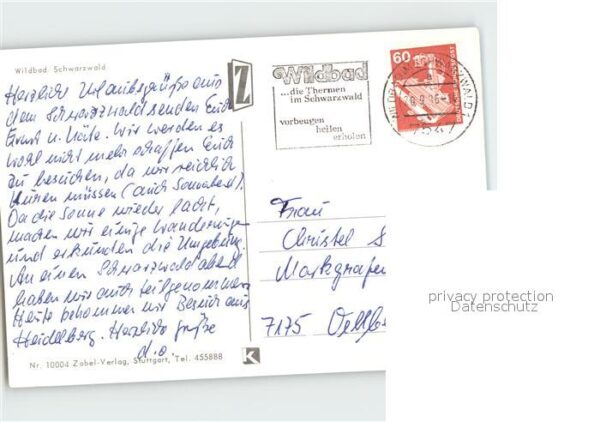 Wildbad Schwarzwald
Herzliche Urlaubsgrüße aus
dem Schwarzwald senden Euch
Ernst u. Käte. Wir werden es
wohl nicht mehr schaffen Euch
zu besuchen, da wir reichlich
Kuren müssen (auch Sonnabend).
Da die Sonne wieder lacht,
machen wir einige Wanderungen
und erkunden die Umgebung.
An einen Schwarzwaldabend
haben wir auch teilgenommen.
Heute bekommen wir Besuch aus
Heidelberg. Herzliche Grüße
d.o.
Nr. 10004 Zobel-Verlag, Stuttgart, Tel. 455888
Z
Wildbad
...die Thermen
im Schwarzwald
vorbeugen
heilen
erholen
60
7547
Frau
Christel S
Markgrafen
7175
K
privacy protection
Datenschutz